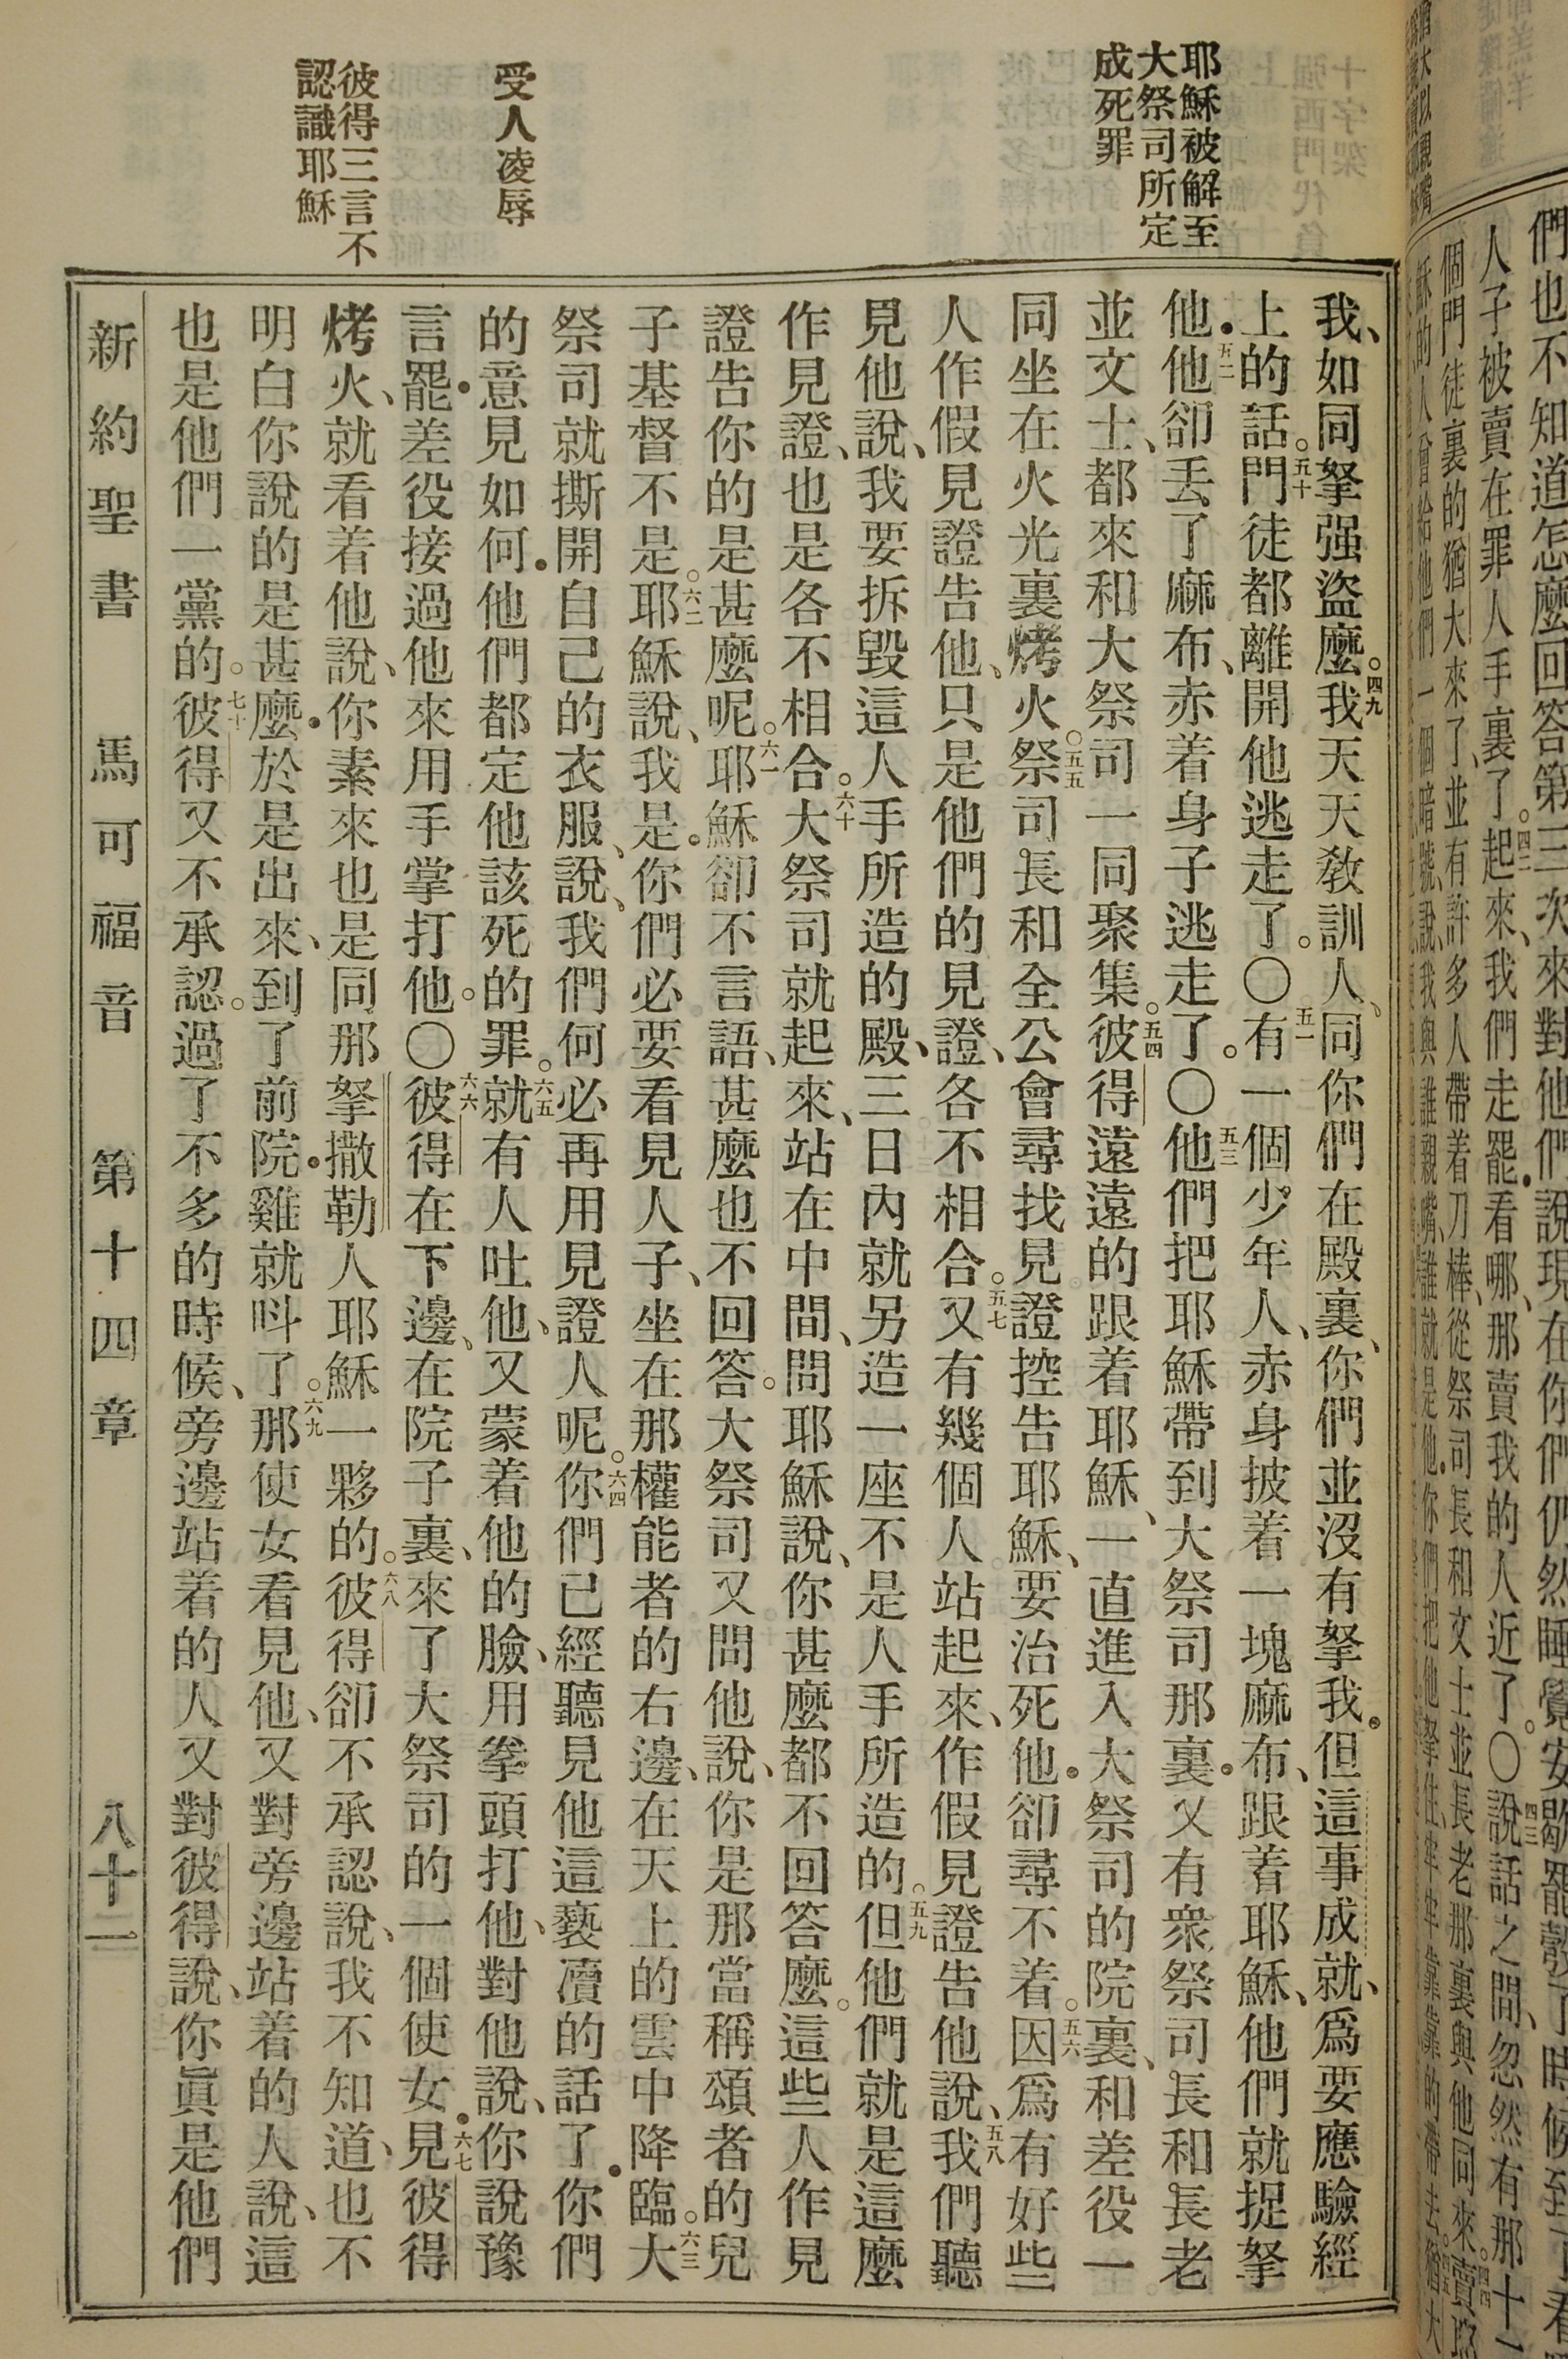 耶穌被解至
大祭司所定
成死罪
受人凌辱
彼得三言不
認識耶穌
我、如同拏强盜麼。四九我天天敎訓人、同你們在殿裏、你們並沒有拏我．但這事成就、爲要應驗經
上的話。五十門徒都離開他逃走了。〇五一有一個少年人、赤身披着一塊麻布、跟着耶穌、他們就捉拏
他．五二他卻丢了麻布、赤着身子逃走了。〇五三他們把耶穌帶到大祭司那裏．又有衆祭司長和長老
並文士、都來和大祭司一同聚集。五四彼得遠遠的跟着耶穌、一直進入大祭司的院裏、和差役一
同坐在火光裏烤火。五五祭司長和全公會尋找見證控告耶穌、要治死他．卻尋不着。五六因爲有好些
人作假見證告他、只是他們的見證、各不相合。五七又有幾個人站起來、作假見證告他說、五八我們聽
見他說、我要拆毀這人手所造的殿、三日內就另造一座不是人手所造的。五九但他們就是這麼
作見證、也是各不相合。六十大祭司就起來、站在中間、問耶穌說、你甚麼都不回答麼。這些人作見
證告你的是甚麼呢。六一耶穌卻不言語、甚麼也不回答。大祭司又問他說、你是那當稱頌者的兒
子基督不是。六二耶穌說、我是．你們必要看見人子、坐在那權能者的右邊、在天上的雲中降臨。六三大
祭司就撕開自己的衣服、說、我們何必再用見證人呢。六四你們已經聽見他這褻瀆的話了．你們
的意見如何．他們都定他該死的罪。六五就有人吐他、又蒙着他的臉、用拳頭打他、對他說、你說豫
言罷．差役接過他來用手掌打他。〇六六彼得在下邊、在院子裏、來了大祭司的一個使女．六七見彼得
烤火、就看着他、說、你素來也是同那拏撒勒人耶穌一夥的。六八彼得卻不承認、說、我不知道、也不
明白你說的是甚麼．於是出來、到了前院．雞就呌了。六九那使女看見他、又對旁邊站着的人說、這
也是他們一黨的。七十彼得又不承認。過了不多的時候、旁邊站着的人又對彼得說、你眞是他們
新約聖書　馬可福音　第十四章　八十二